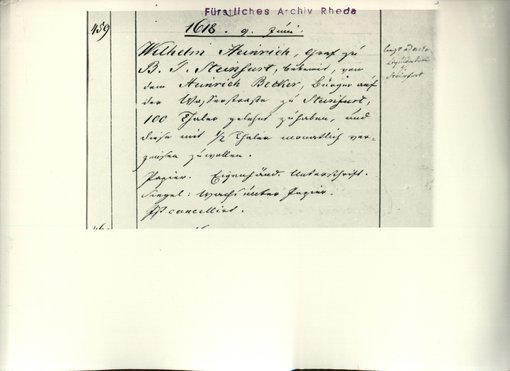 Fürstliches Archiv Rheda
459
1618. 9. Juni.
Wilhelm Heinrich, Graf zu
B. T. Steinfurt, bekennt, von
dem Heinrich Becker, Bürger auf
der Wasserstraße zu Steinfurt,
100 Thaler geliehen zu haben, und
diese mit 1/2 Thaler monatlich ver-
zinsen zu wollen.
Papier. Eigenhänd. Unterschrift.
Siegel: Wachs unter Papier.
Ist cancelliert.
Steinfurt